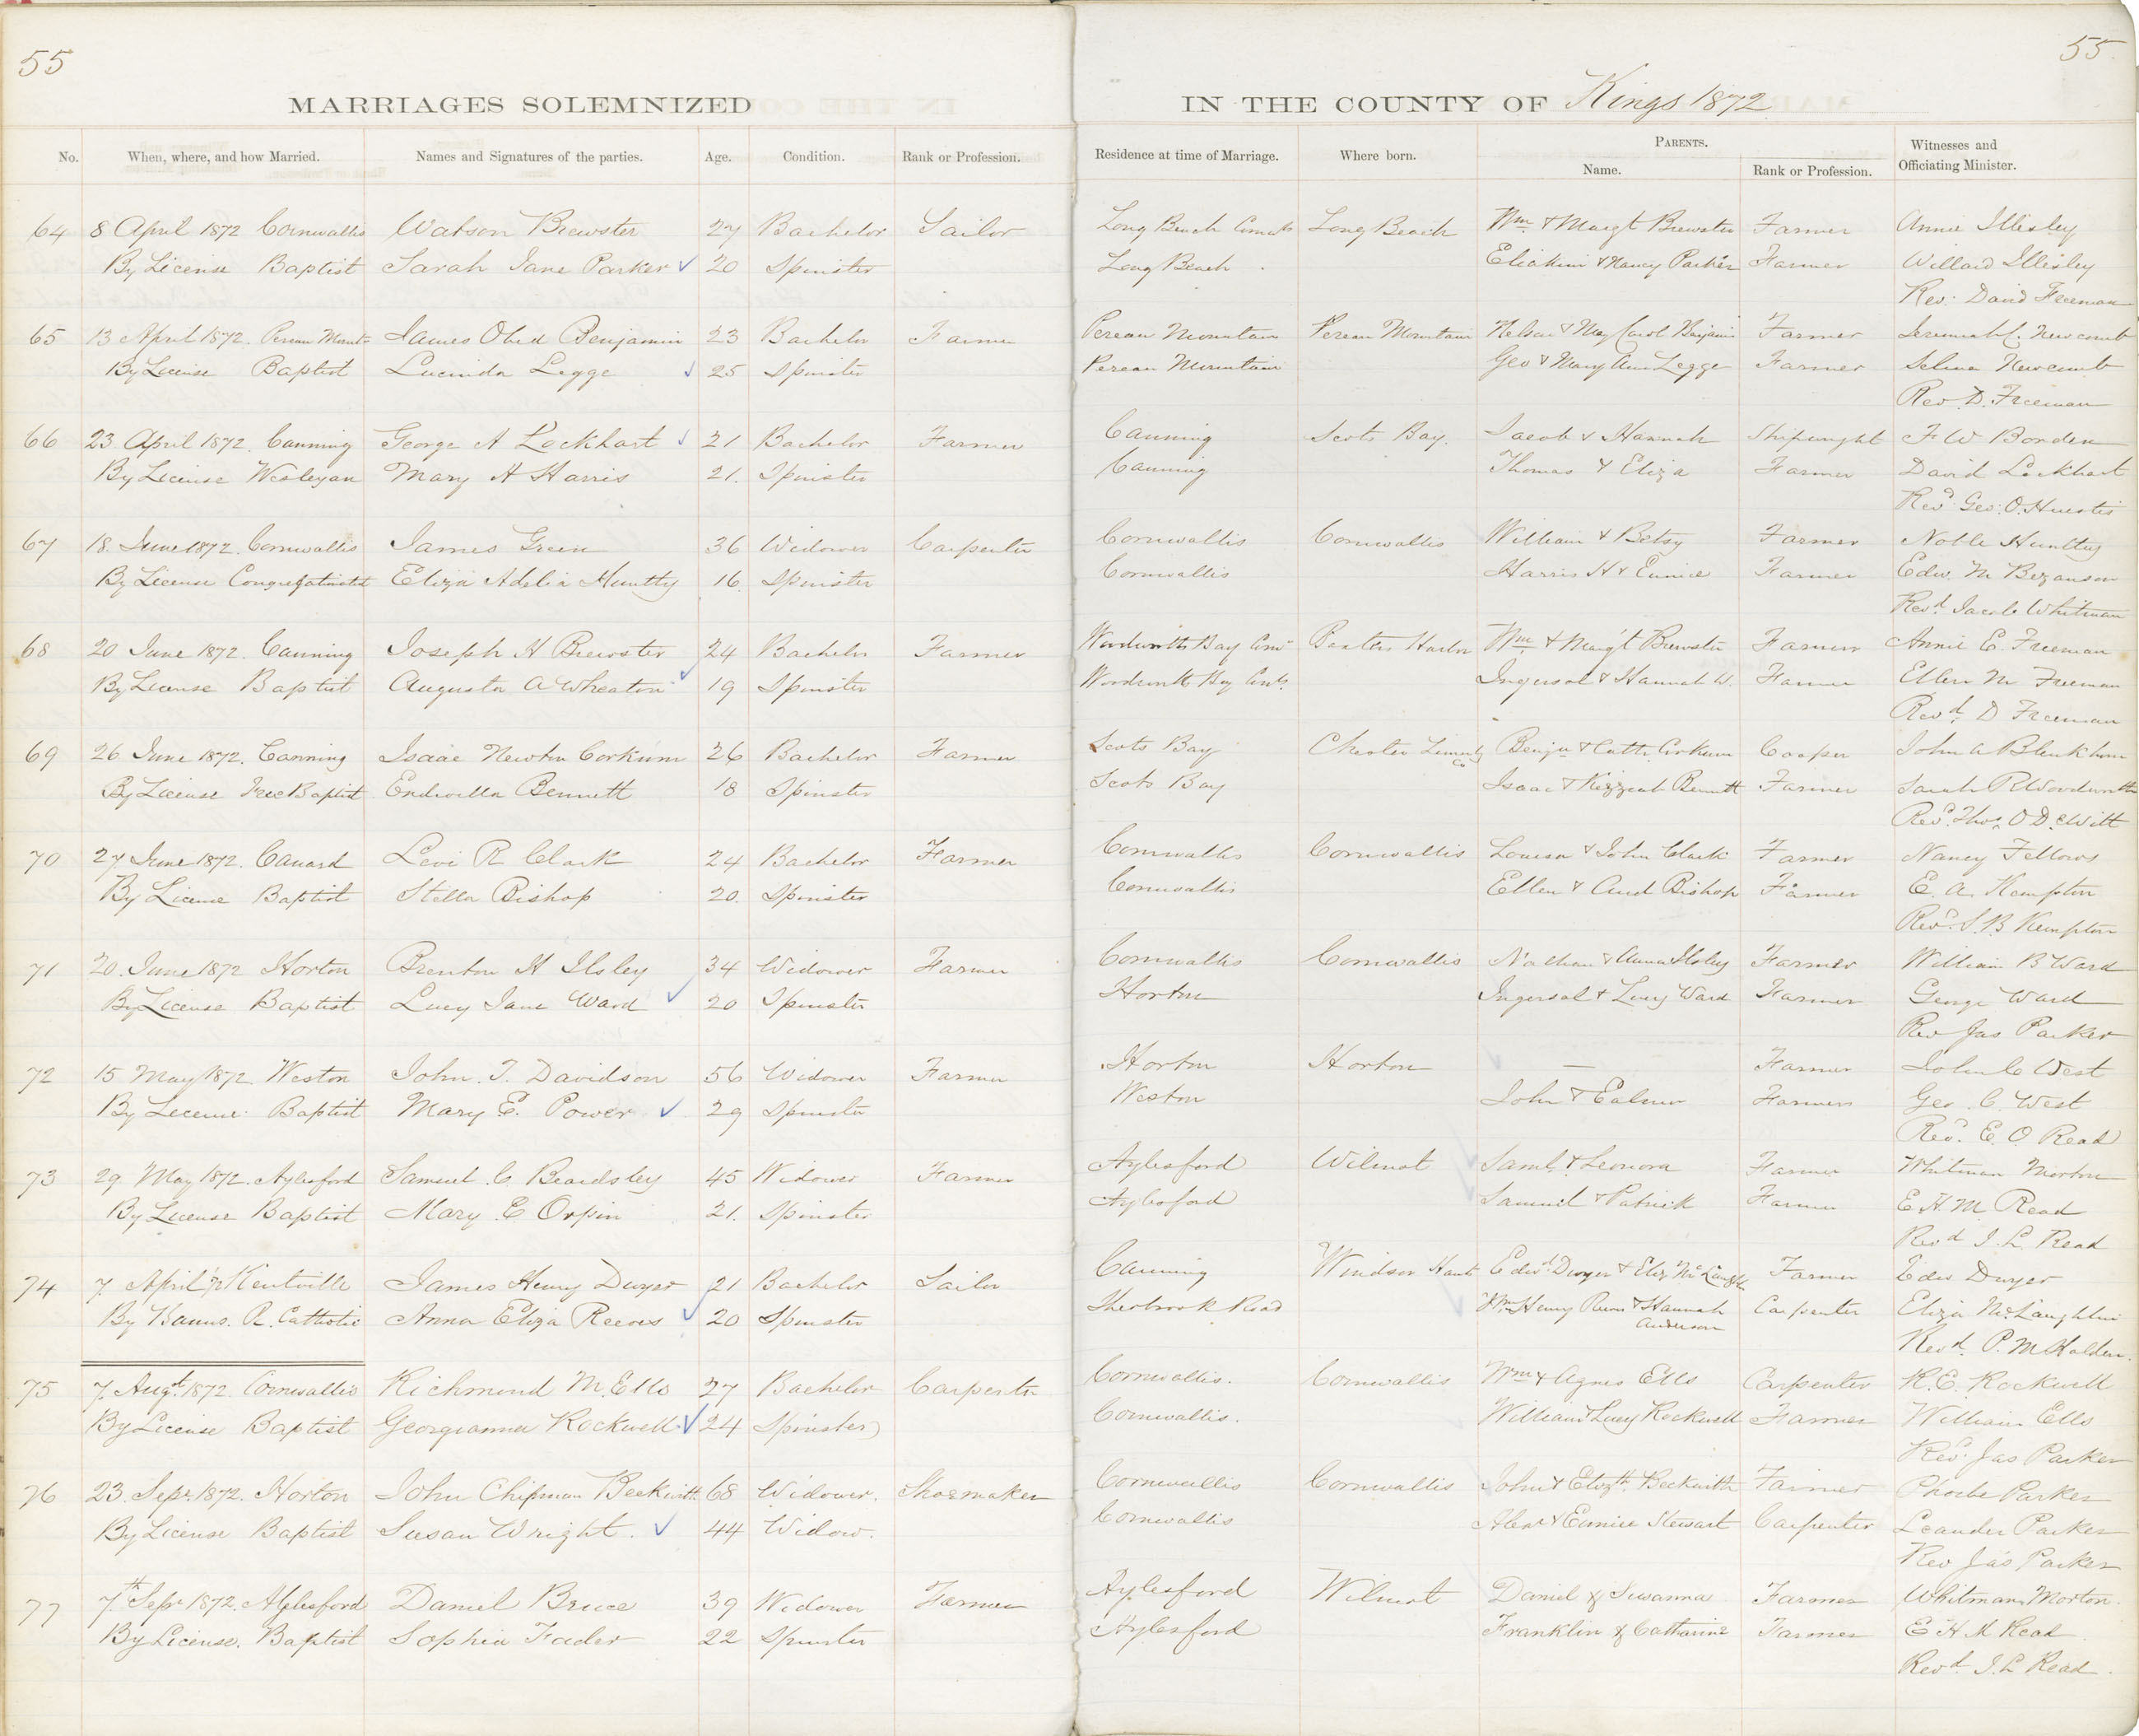 55
55
MARRIAGES SOLEMNIZED IN THE COUNTY OF Kings 1872
No. When, where, and how Married. Names and Signatures of the parties. Age. Condition. Rank or Profession. Residence at time of Marriage. Where born. PARENTS. Name. Rank or Profession. Witnesses and Officiating Minister.
64 8 April 1872 Cornwallis Watson Brewster 27 Bachelor Sailor Long Beach Cornwls Long Beach Wm & Margt Brewster Farmer Annie Illesley
By License Baptist Sarah Jane Parker 20 Spinster Long Beach Eliakim & Nancy Parker Farmer Willard Illesley
Rev. David Freeman
65 13 April 1872. Pereau Mount James Obed Benjamin 23 Bachelor Farmer Pereau Mountain Pereau Mountain Nelson & May Carol Benjamin Farmer Jeremiah C. Newcomb
By License Baptist Lucinda Legge 25 Spinster Pereau Mountain Geo & Mary Ann Legge Farmer Selina Newcomb
Rev D. Freeman
66 23 April 1872. Canning George A Lockhart 21 Bachelor Farmer Canning Scots Bay. Jacob & Hannah Shipwright F W Borden
By License Wesleyan Mary A Harris 21. Spinster Canning Thomas & Eliza Farmer David Lockhart
Revd Geo. O. Huestis
67 18. June 1872. Cornwallis James Green 36 Widower Carpenter Cornwallis Cornwallis William & Betsy Farmer Noble Huntley
By License Congregationalst Eliza Adelia Huntly 16 Spinster Cornwallis Harris H & Eunice Farmer Edw. M Bezanson
Revd Jacob Whitman
68 20 June 1872. Canning Joseph H Brewster 24 Bachelor Farmer Woodworths Bay Corn Baxters Harbor Wm & Margt Brewster Farmer Annie E. Freeman
By License Baptist Augusta A Wheaton 19 Spinster Woodworth Bay Cornls. Ingersol & Hannah W. Farmer Ellen M Freeman
Revd. D Freeman
69 26 June 1872. Canning Isaac Newton Corkum 26 Bachelor Farmer Scots Bay Chester Lunenb Co Benjn & Cath Corkum Cooper John A Blenkhorn
By License Free Baptist Endwilla Bennett 18 Spinster Scots Bay Isaac & Kezzeah Bennett Farmer Sarah P Woodworth
Revd. Thos. O DeWitt
70 27 June 1872. Canard Levi R Clark 24 Bachelor Farmer Cornwallis Cornwallis Louisa & John Clark Farmer Nancy Fellows
By License Baptist Stella Bishop 20. Spinster Cornwallis Ellen & Aud Bishop Farmer E. A. Kempton
Revd. S. B Kempton
71 20. June 1872 Horton Brenton H Ilsley 34 Widower Farmer Cornwallis Cornwallis Nathan & Anna Ilsley Farmer William B Ward
By License Baptist Lucy Jane Ward 20 Spinster Horton Ingersol & Lucy Ward Farmer George Ward
Rev Jas Parker
72 15 May 1872 Weston John. T. Davidson 56 Widower Farmer Horton Horton — Farmer John C West
By License Baptist Mary E. Power 29 Spinster Weston John & Farmer Geo. C. West
Revd. E. O Read
73 29. May 1872. Aylesford Samuel. C. Beardsley 45 Widower Farmer Aylesford Wilmot Saml. & Leonora Farmer Whitman Morton
By License Baptist Mary E Orpin 21. Spinster Aylesford Samuel & Patrick Farmer E. H. M Read
Revd J. L. Read
74 7 April /72 Kentville James Henry Dwyer 21 Bachelor Sailor Canning Windsor Hants Edwd. Dwyer & Eliz McLaughln Farmer Edw Dwyer
By Banns. R. Catholic Anna Eliza Reeves 20 Spinster Sherbrook Road Wm Henry Reeves & Hannah Anderson Carpenter Eliza McLaughlin
Revd. P. M. Holden.
75 7. Augt. 1872. Cornwallis Richmond M. Ells 27 Bachelor Carpenter Cornwallis. Cornwallis Wm & Agnes Ells Carpenter R. E. Rockwell
By License Baptist Georgianna Rockwell 24 Spinster Cornwallis. William & Lucy Rockwell Farmer William Ells
Revd. Jas Parker
76 23. Sepr. 1872. Horton John Chipman Beckwith 68 Widower. Shoemaker Cornwallis Cornwallis John & Elizth. Beckwith Farmer Phoebe Parker
By License Baptist Susan Wright. 44 Widow. Cornwallis Abner & Eunice Stewart Carpenter Leander Parker
Rev Jas Parker
77 7th Sepr 1872. Aylesford Daniel Bruce 39 Widower Farmer Aylesford Wilmot Daniel & Suwanna Farmer Whitman Morton.
By License. Baptist Sophia Fader 22 Spinster Aylesford Franklin & Catharine Farmer E H M Read
Revd. J. L Read.